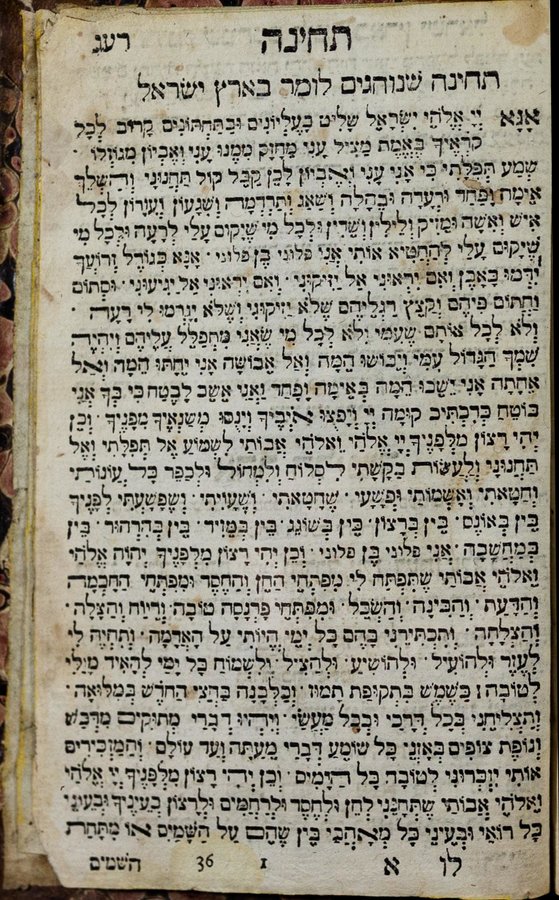 תחינה רעג
תחינה שנוהגים לומר בארץ ישראל
אָנָּא יְיָ אֱלֹהֵי יִשְׂרָאֵל שַׁלִּיט בָּעֶלְיוֹנִים וּבַתַּחְתּוֹנִים קָרוֹב לְכָל
קֹרְאֶיךָ בֶּאֱמֶת מַצִּיל עָנִי מֵחָזָק מִמֶּנּוּ עָנִי וְאֶבְיוֹן מִגּוֹזְלוֹ
שְׁמַע תְּפִלָּתִי כִּי אֲנִי עָנִי וְאֶבְיוֹן לָכֵן קַבֵּל קוֹל תַּחֲנוּנַי וְהַשְׁלֵךְ
אֵימָה וָפַחַד וּרְעָדָה וּבֶהָלָה וְשֹׁאג וְתַרְדֵּמָה וְשִׁגָּעוֹן וְעִוָּרוֹן לְכָל
אִישׁ וְאִשָּׁה וּמַזִּיק וְלִילִין וְשֵׁדִין וּלְכָל מִי שֶׁיָּקוּם עָלַי לְרָעָה וּלְכָל מִי
שֶׁיָּקוּם עָלַי לְהַחֲטִיא אוֹתִי אֲנִי פְּלוֹנִי בֶּן פְּלוֹנִי ׃ אָנָּא בִּגְדֹל זְרוֹעֲךָ
יִדְּמוּ כָּאָבֶן וְאִם יִרְאוּנִי אַל יַזִּיקוּנִי ׃ וְאִם יִרְאוּנִי אַל יַגִּיעוּנִי ׃ וּסְתוֹם
וַחֲתוֹם פִּיהֶם וְקַצֵּץ רַגְלֵיהֶם שֶׁלֹּא יַזִּיקוּנִי וְשֶׁלֹּא יִגְרְמוּ לִי רָעָה ׃
וְלֹא לְכָל אוֹתָם שֶׁעִמִּי וְלֹא לְכָל מִי שֶׁאֲנִי מִתְפַּלֵּל עֲלֵיהֶם וְיִהְיֶה
שִׁמְךָ הַגָּדוֹל עִמִּי וְיֵבוֹשׁוּ הֵמָּה וְאַל אֵבוֹשָׁה אֲנִי יֵחַתּוּ הֵמָּה וְאַל
אֵחַתָּה אֲנִי יֵשְׁבוּ הֵמָּה בְּאֵימָה וָפַחַד וַאֲנִי אֵשֵׁב לָבֶטַח כִּי בְךָ אֲנִי
בּוֹטֵחַ כְּדִכְתִיב קוּמָה יְיָ וְיָפֻצוּ אֹיְבֶיךָ וְיָנֻסוּ מְשַׂנְאֶיךָ מִפָּנֶיךָ ׃ וְכֵן
יְהִי רָצוֹן מִלְּפָנֶיךָ יְיָ אֱלֹהַי וֵאלֹהֵי אֲבוֹתַי לִשְׁמוֹעַ אֶל תְּפִלָּתִי וְאֶל
תַּחֲנוּנַי וְלַעֲשׂוֹת בַּקָּשָׁתִי לִסְלוֹחַ וְלִמְחוֹל וּלְכַפֵּר כָּל עֲוֹנוֹתַי
וְחַטֹּאתַי וְאַשְׁמוֹתַי וּפְשָׁעַי ׃ שֶׁחָטָאתִי ׃ וְשֶׁעָוִיתִי ׃ וְשֶׁפָּשַׁעְתִּי לְפָנֶיךָ
בֵּין בְּאוֹנֶס ׃ בֵּין בְּרָצוֹן ׃ בֵּין בְּשׁוֹגֵג ׃ בֵּין בְּמֵזִיד ׃ בֵּין בְּהִרְהוּר ׃ בֵּין
בְּמַחֲשָׁבָה ׃ אֲנִי פְּלוֹנִי בֶּן פְּלוֹנִי ׃ וְכֵן יְהִי רָצוֹן מִלְּפָנֶיךָ יְהוָֹה אֱלֹהַי
וֵאלֹהֵי אֲבוֹתַי שֶׁתִּפְתַּח לִי מִפְתְּחֵי הַחֵן וְהַחֶסֶד וּמִפְתְּחֵי הַחָכְמָה
וְהַדַּעַת ׃ וְהַבִּינָה ׃ וְהַשֵּׂכֶל ׃ וּמִפְתְּחֵי פַּרְנָסָה טוֹבָה וְרֵיוַח וְהַצָּלָה ׃
וְהַצְלָחָה ׃ וְתַכְתִּירֵנִי בָּהֶם כָּל יְמֵי הֱיוֹתִי עַל הָאֲדָמָה ׃ וְתִהְיֶה לִי
לְעֵזֶר וּלְהוֹעִיל ׃ וּלְהוֹשִׁיעַ ׃ וּלְהַצִּיל ׃ וְלִשְׂמוֹחַ כָּל יָמַי לְהָאִיר מַזָּלִי
לְטוֹבָה ׃ כַּשֶּׁמֶשׁ בִּתְקוּפַת תַּמּוּז ׃ וְכַלְּבָנָה בַּחֲצִי הַחֹדֶשׁ בְּמִלּוּאָהּ ׃
וְהַצְלִיחֵנִי בְּכָל דְּרָכַי וּבְכָל מַעֲשַׂי ׃ וְיִהְיוּ דְּבָרַי מְתוּקִים מִדְּבַשׁ
וְנוֹפֶת צוּפִים בְּאָזְנֵי כָּל שׁוֹמֵעַ דְּבָרַי מֵעַתָּה וְעַד עוֹלָם ׃ וְהַמַּזְכִּירִים
אוֹתִי יִזְכְּרוּנִי לְטוֹבָה כָּל הַיָּמִים ׃ וְכֵן יְהִי רָצוֹן מִלְּפָנֶיךָ יְיָ אֱלֹהַי
וֵאלֹהֵי אֲבוֹתַי שֶׁתִּתְּנֵנִי לְחֵן וּלְחֶסֶד וּלְרַחֲמִים וּלְרָצוֹן בְּעֵינֶיךָ וּבְעֵינֵי
כָּל רוֹאַי וּבְעֵינֵי כָּל מְאַהֲבַי בֵּין שֶׁהֵם עַל הַשָּׁמַיִם אוֹ מִתַּחַת
לו א 1 36 השמים